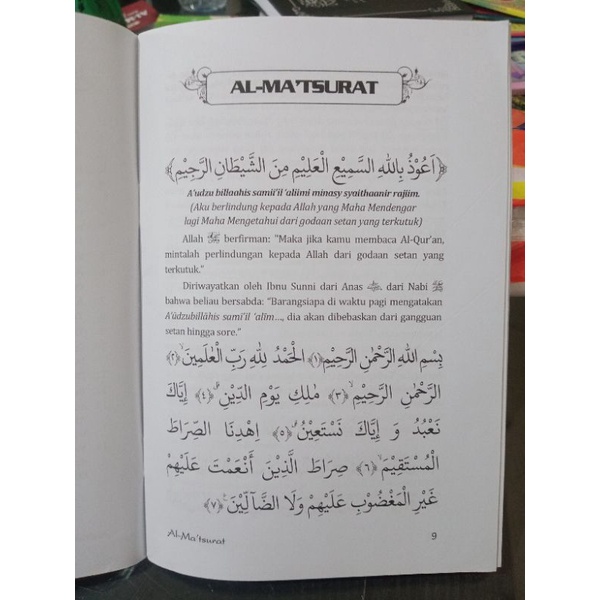 AL-MA'TSURAT
﴿اَعُوْذُ بِاللهِ السَّمِيْعِ الْعَلِيْمِ مِنَ الشَّيْطَانِ الرَّجِيْمِ﴾
A'udzu billaahis samii'il 'aliimi minasy syaithaanir rajiim.
(Aku berlindung kepada Allah yang Maha Mendengar
lagi Maha Mengetahui dari godaan setan yang terkutuk)
Allah ﷻ berfirman: "Maka jika kamu membaca Al-Qur'an,
mintalah perlindungan kepada Allah dari godaan setan yang
terkutuk."
Diriwayatkan oleh Ibnu Sunni dari Anas dari Nabi ﷺ
bahwa beliau bersabda: "Barangsiapa di waktu pagi mengatakan
A'ûdzubillâhis samî'il 'alîm..., dia akan dibebaskan dari gangguan
setan hingga sore."
بِسْمِ اللهِ الرَّحْمٰنِ الرَّحِيْمِ ﴿١﴾ الْحَمْدُ لِلهِ رَبِّ الْعٰلَمِيْنَ ۙ ﴿٢﴾
الرَّحْمٰنِ الرَّحِيْمِ ۙ ﴿٣﴾ مٰلِكِ يَوْمِ الدِّيْنِ ۗ ﴿٤﴾ إِيَّاكَ
نَعْبُدُ وَ إِيَّاكَ نَسْتَعِيْنُ ۗ ﴿٥﴾ اِهْدِنَا الصِّرَاطَ
الْمُسْتَقِيْمَ ۙ ﴿٦﴾ صِرَاطَ الَّذِيْنَ أَنْعَمْتَ عَلَيْهِمْ
غَيْرِ الْمَغْضُوْبِ عَلَيْهِمْ وَلَا الضَّآلِّيْنَ ۚ ﴿٧﴾
Al-Ma'tsurat 9